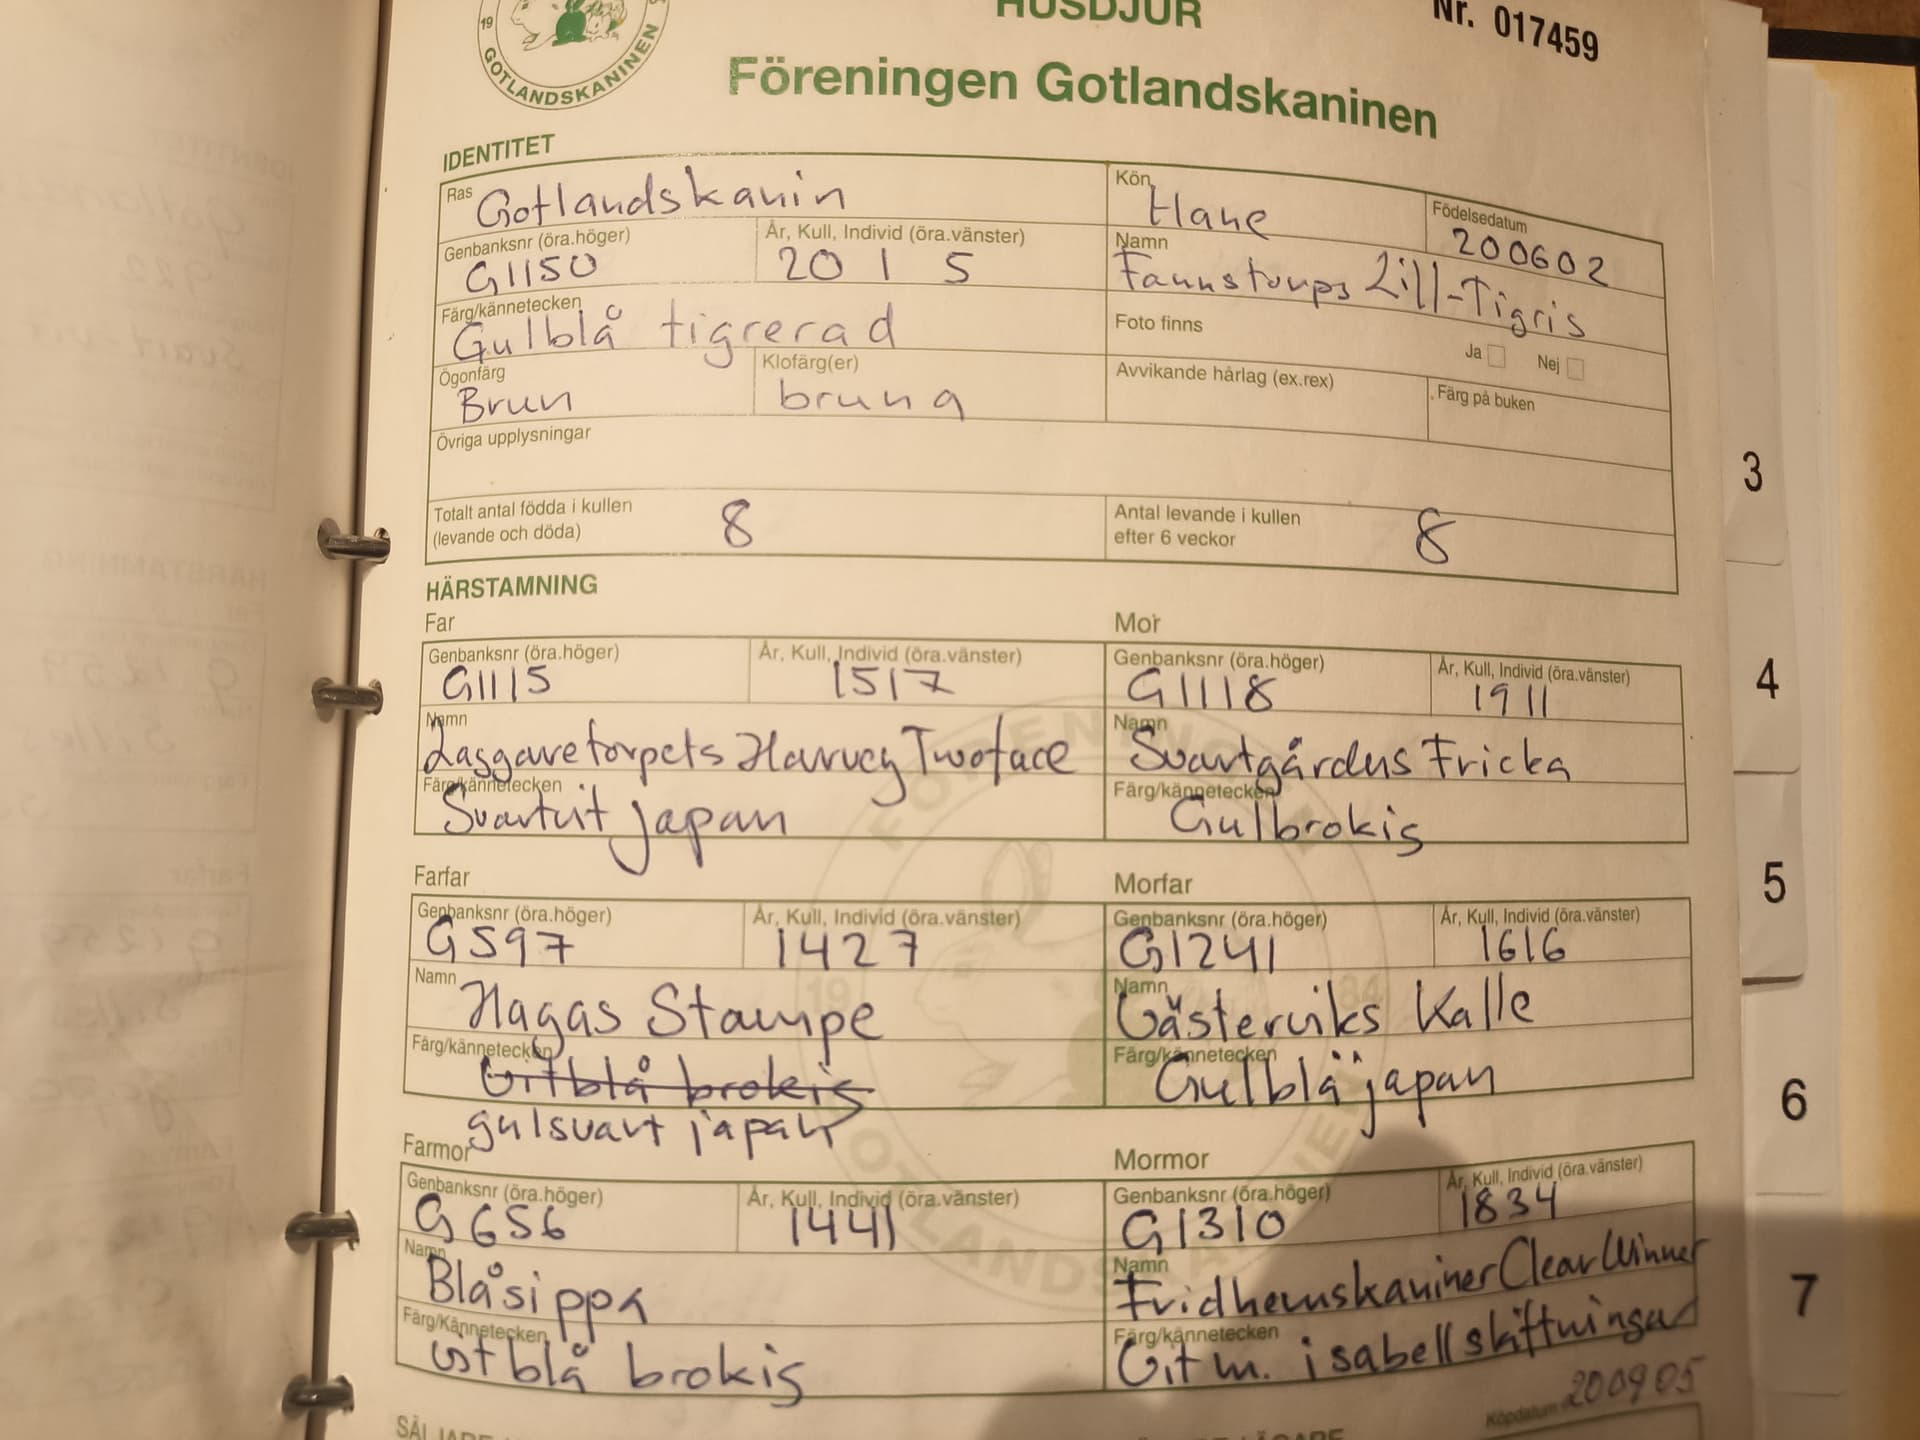 HUSDJUR
Nr. 017459
19
GOTLANDSKANINEN
Föreningen Gotlandskaninen
IDENTITET
Ras Gotlandskanin
Kön Hane
Födelsedatum 200602
Genbanksnr (öra.höger) G1150
År, Kull, Individ (öra.vänster) 20 1 5
Namn Fannstorps Lill-Tigris
Färg/kännetecken Gulblå tigrerad
Foto finns
Ja Nej
Ögonfärg Brun
Klofärg(er) bruna
Avvikande hårlag (ex.rex)
Färg på buken
Övriga upplysningar
Totalt antal födda i kullen
(levande och döda) 8
Antal levande i kullen
efter 6 veckor 8
HÄRSTAMNING
Far
Genbanksnr (öra.höger) G1115
År, Kull, Individ (öra.vänster) 1517
Namn Lasgaretorpets Harvey Twoface
Färg/kännetecken Svartvit japan
Mor
Genbanksnr (öra.höger) G1118
År, Kull, Individ (öra.vänster) 1911
Namn Svartgårdns Fricka
Färg/kännetecken Gulbrokig
Farfar
Genbanksnr (öra.höger) G597
År, Kull, Individ (öra.vänster) 1427
Namn Hagas Stampe
Färg/kännetecken Vitblå brokig
gulsvart japan
Morfar
Genbanksnr (öra.höger) G1241
År, Kull, Individ (öra.vänster) 1616
Namn Västerviks Kalle
Färg/kännetecken Gulblå japan
Farmor
Genbanksnr (öra.höger) G656
År, Kull, Individ (öra.vänster) 1441
Namn Blåsippa
Färg/Kännetecken Vitblå brokig
Mormor
Genbanksnr (öra.höger) G1310
År, Kull, Individ (öra.vänster) 1834
Namn Fridhemskaniner Clear Winner
Färg/kännetecken Vit m. isabellskiftningar
Köpdatum 200905
3
4
5
6
7